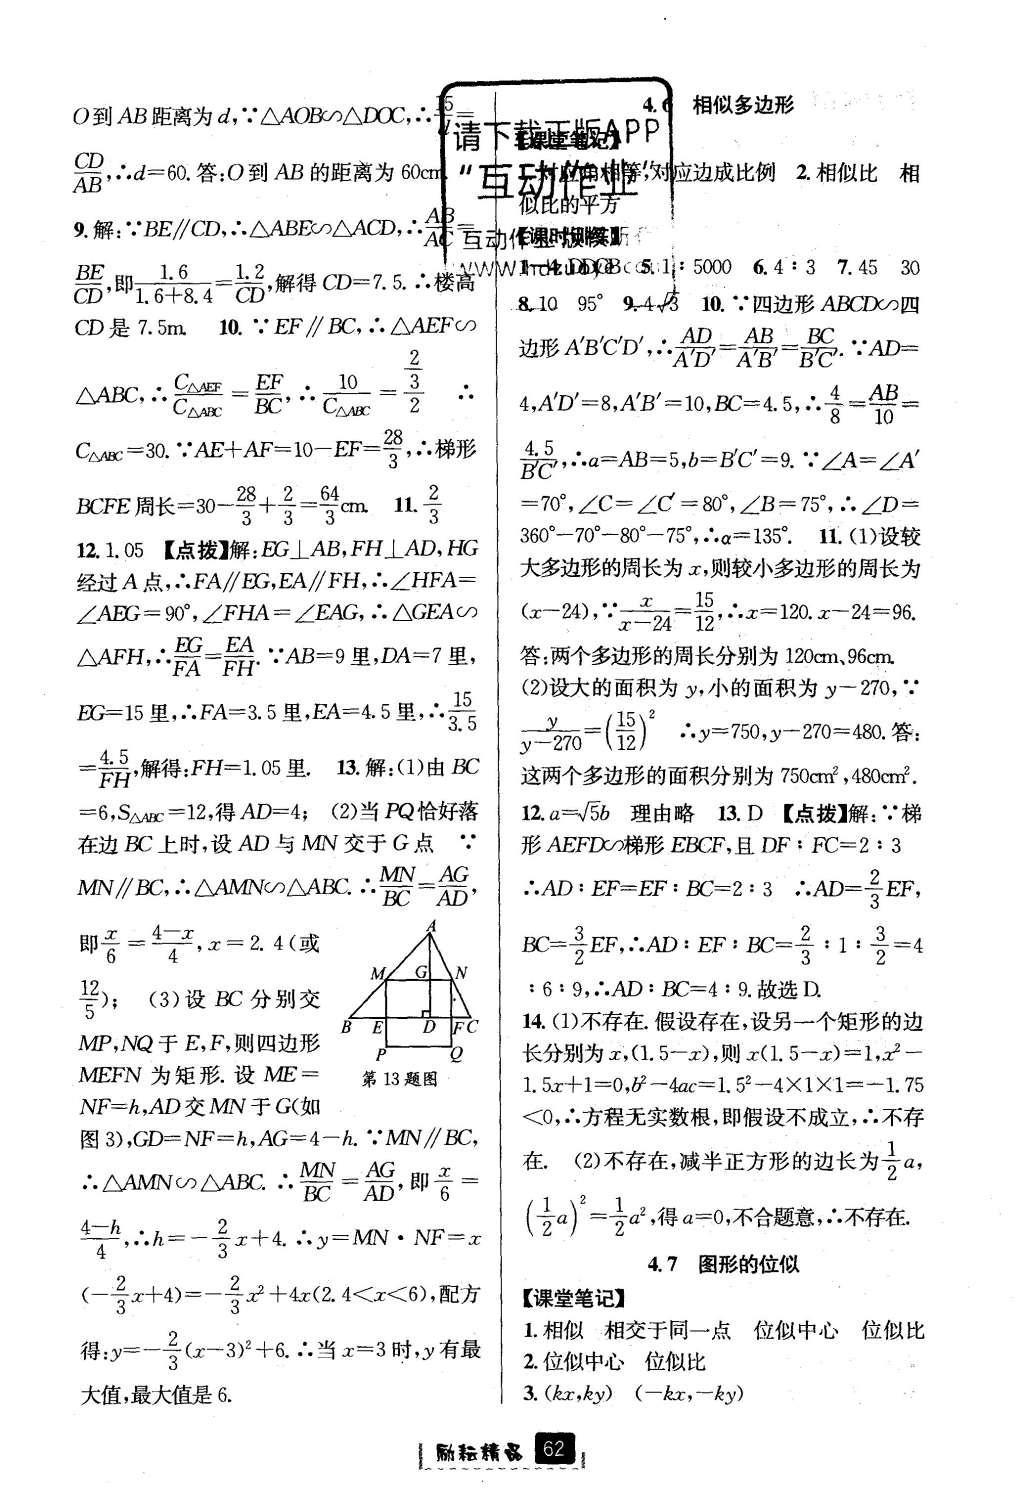 O到AB距离为d,∵△AOB∽△DOC,∴15/d=
CD/AB,∴d=60.答:O到AB的距离为60cm.
9.解:∵BE∥CD,∴△ABE∽△ACD,∴AB/AC=
BE/CD,即1.6/(1.6+8.4)=1.2/CD,解得CD=7.5.∴楼高
CD是7.5m. 10.∵EF∥BC,∴△AEF∽
△ABC,∴C△AEF/C△ABC=EF/BC,∴10/C△ABC=(2/3)/2 ∴
C△ABC=30.∵AE+AF=10-EF=28/3,∴梯形
BCFE周长=30-28/3+2/3=64/3cm. 11.2/3
12.1.05 【点拨】解:EG⊥AB,FH⊥AD,HG
经过A点,∴FA∥EG,EA∥FH,∴∠HFA=
∠AEG=90°,∠FHA=∠EAG,∴△GEA∽
△AFH,∴EG/FA=EA/FH.∵AB=9里,DA=7里,
EG=15里,∴FA=3.5里,EA=4.5里,∴15/3.5
=4.5/FH,解得:FH=1.05里. 13.解:(1)由BC
=6,S△ABC=12,得AD=4; (2)当PQ恰好落
在边BC上时,设AD与MN交于G点 ∵
MN∥BC,∴△AMN∽△ABC.∴MN/BC=AG/AD,
即x/6=(4-x)/4,x=2.4(或
12/5); (3)设BC分别交
MP,NQ于E,F,则四边形
MEFN为矩形.设ME=
NF=h,AD交MN于G(如
A
M G N
B E D F C
P Q
第13题图
图3),GD=NF=h,AG=4-h.∵MN∥BC,
∴△AMN∽△ABC.∴MN/BC=AG/AD,即x/6=
(4-h)/4,∴h=-2/3x+4.∴y=MN·NF=x
(-2/3x+4)=-2/3x²+4x(2.4<x<6),配方
得:y=-2/3(x-3)²+6.∴当x=3时,y有最
大值,最大值是6.
请下载正版APP
“互动作业”
4.6 相似多边形
【课堂笔记】
1.对应角相等,对应边成比例 2.相似比 相
似比的平方
【课时训练】
1—4.DDCB 5.1∶5000 6.4∶3 7.45 30
8.10 95° 9.4√3 10.∵四边形ABCD∽四
边形A′B′C′D′,∴AD/A′D′=AB/A′B′=BC/B′C′.∵AD=
4,A′D′=8,A′B′=10,BC=4.5,∴4/8=AB/10=
4.5/B′C′,∴a=AB=5,b=B′C′=9.∵∠A=∠A′
=70°,∠C=∠C′=80°,∠B=75°,∴∠D=
360°-70°-80°-75°,∴α=135°. 11.(1)设较
大多边形的周长为x,则较小多边形的周长为
(x-24),∵x/(x-24)=15/12,∴x=120.x-24=96.
答:两个多边形的周长分别为120cm、96cm.
(2)设大的面积为y,小的面积为y-270,∵
y/(y-270)=(15/12)² ∴y=750,y-270=480.答:
这两个多边形的面积分别为750cm²,480cm².
12.a=√5b 理由略 13.D 【点拨】解:∵梯
形AEFD∽梯形EBCF,且DF∶FC=2∶3
∴AD∶EF=EF∶BC=2∶3 ∴AD=2/3EF,
BC=3/2EF,∴AD∶EF∶BC=2/3∶1∶3/2=4
∶6∶9,∴AD∶BC=4∶9.故选D.
14.(1)不存在.假设存在,设另一个矩形的边
长分别为x,(1.5-x),则x(1.5-x)=1,x²-
1.5x+1=0,b²-4ac=1.5²-4×1×1=-1.75
<0,∴方程无实数根,即假设不成立,∴不存
在. (2)不存在,减半正方形的边长为1/2a,
(1/2a)²=1/2a²,得a=0,不合题意,∴不存在.
4.7 图形的位似
【课堂笔记】
1.相似 相交于同一点 位似中心 位似比
2.位似中心 位似比
3.(kx,ky) (-kx,-ky)
励耘精品 62